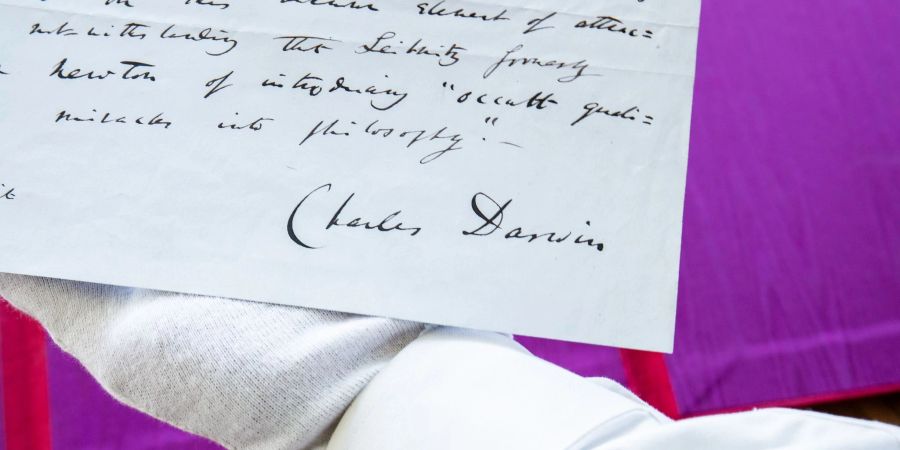 on this unknown element of attrac=
notwithstanding that Leibnitz formerly
Newton of introducing "occult quali=
miracles into philosophy." —
Charles Darwin